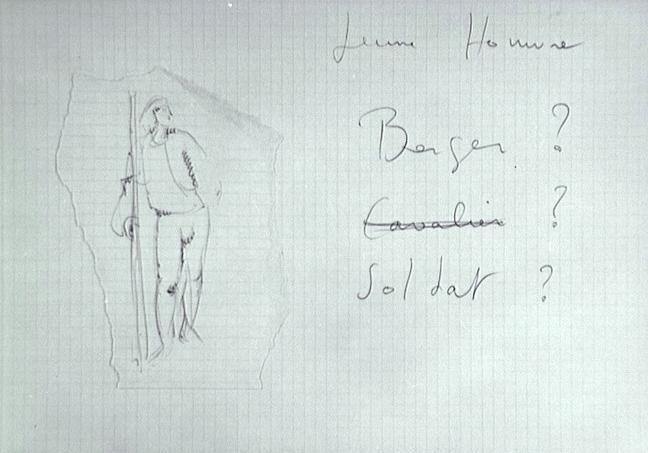 Jeune Homme
Berger ?
Cavalier ?
Soldat ?